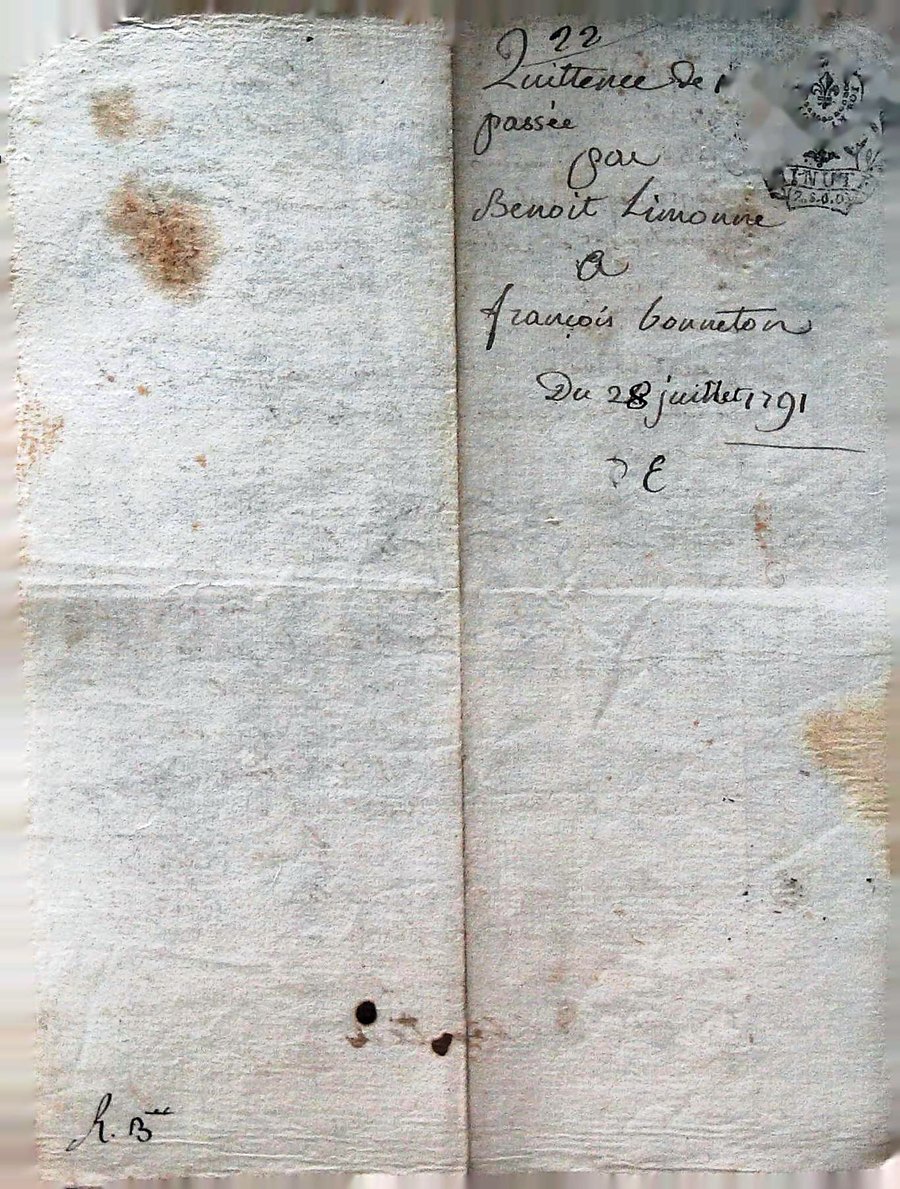 22
Quittence de
passée
par
Benoit Limonne
a
françois bonneton
Du 28 juillet 1791
E
R. B